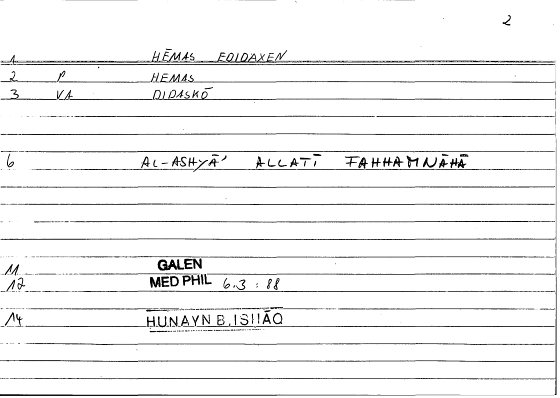 2
1 HĒMAS EDIDAXEN
2 P HEMAS
3 VA DIDASKŌ
6 AL-ASHYĀ' ALLATĪ FAHHAMNĀHĀ
11 GALEN
12 MED PHIL 6.3 : 88
14 ḤUNAYN B. ISḤĀQ